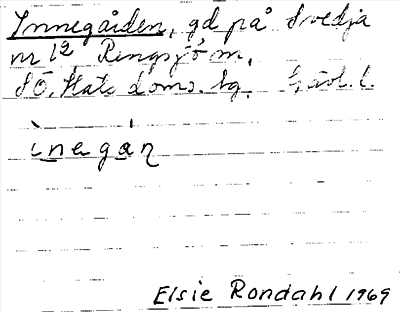 Innegården, gd på Svedja
nr 12, Ringsjö m,
Häls doms. sg. Gävl. l.
ìnagán
Elsie Rondahl 1969